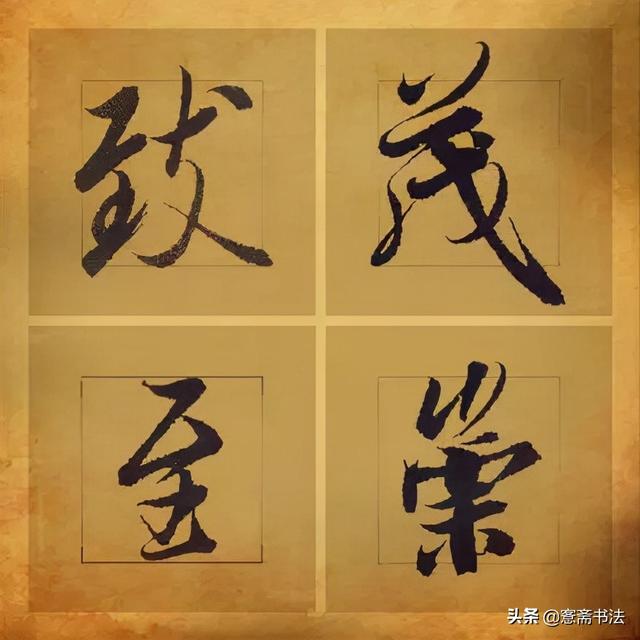 致 茂
至 崇
头条 @愙斋书法